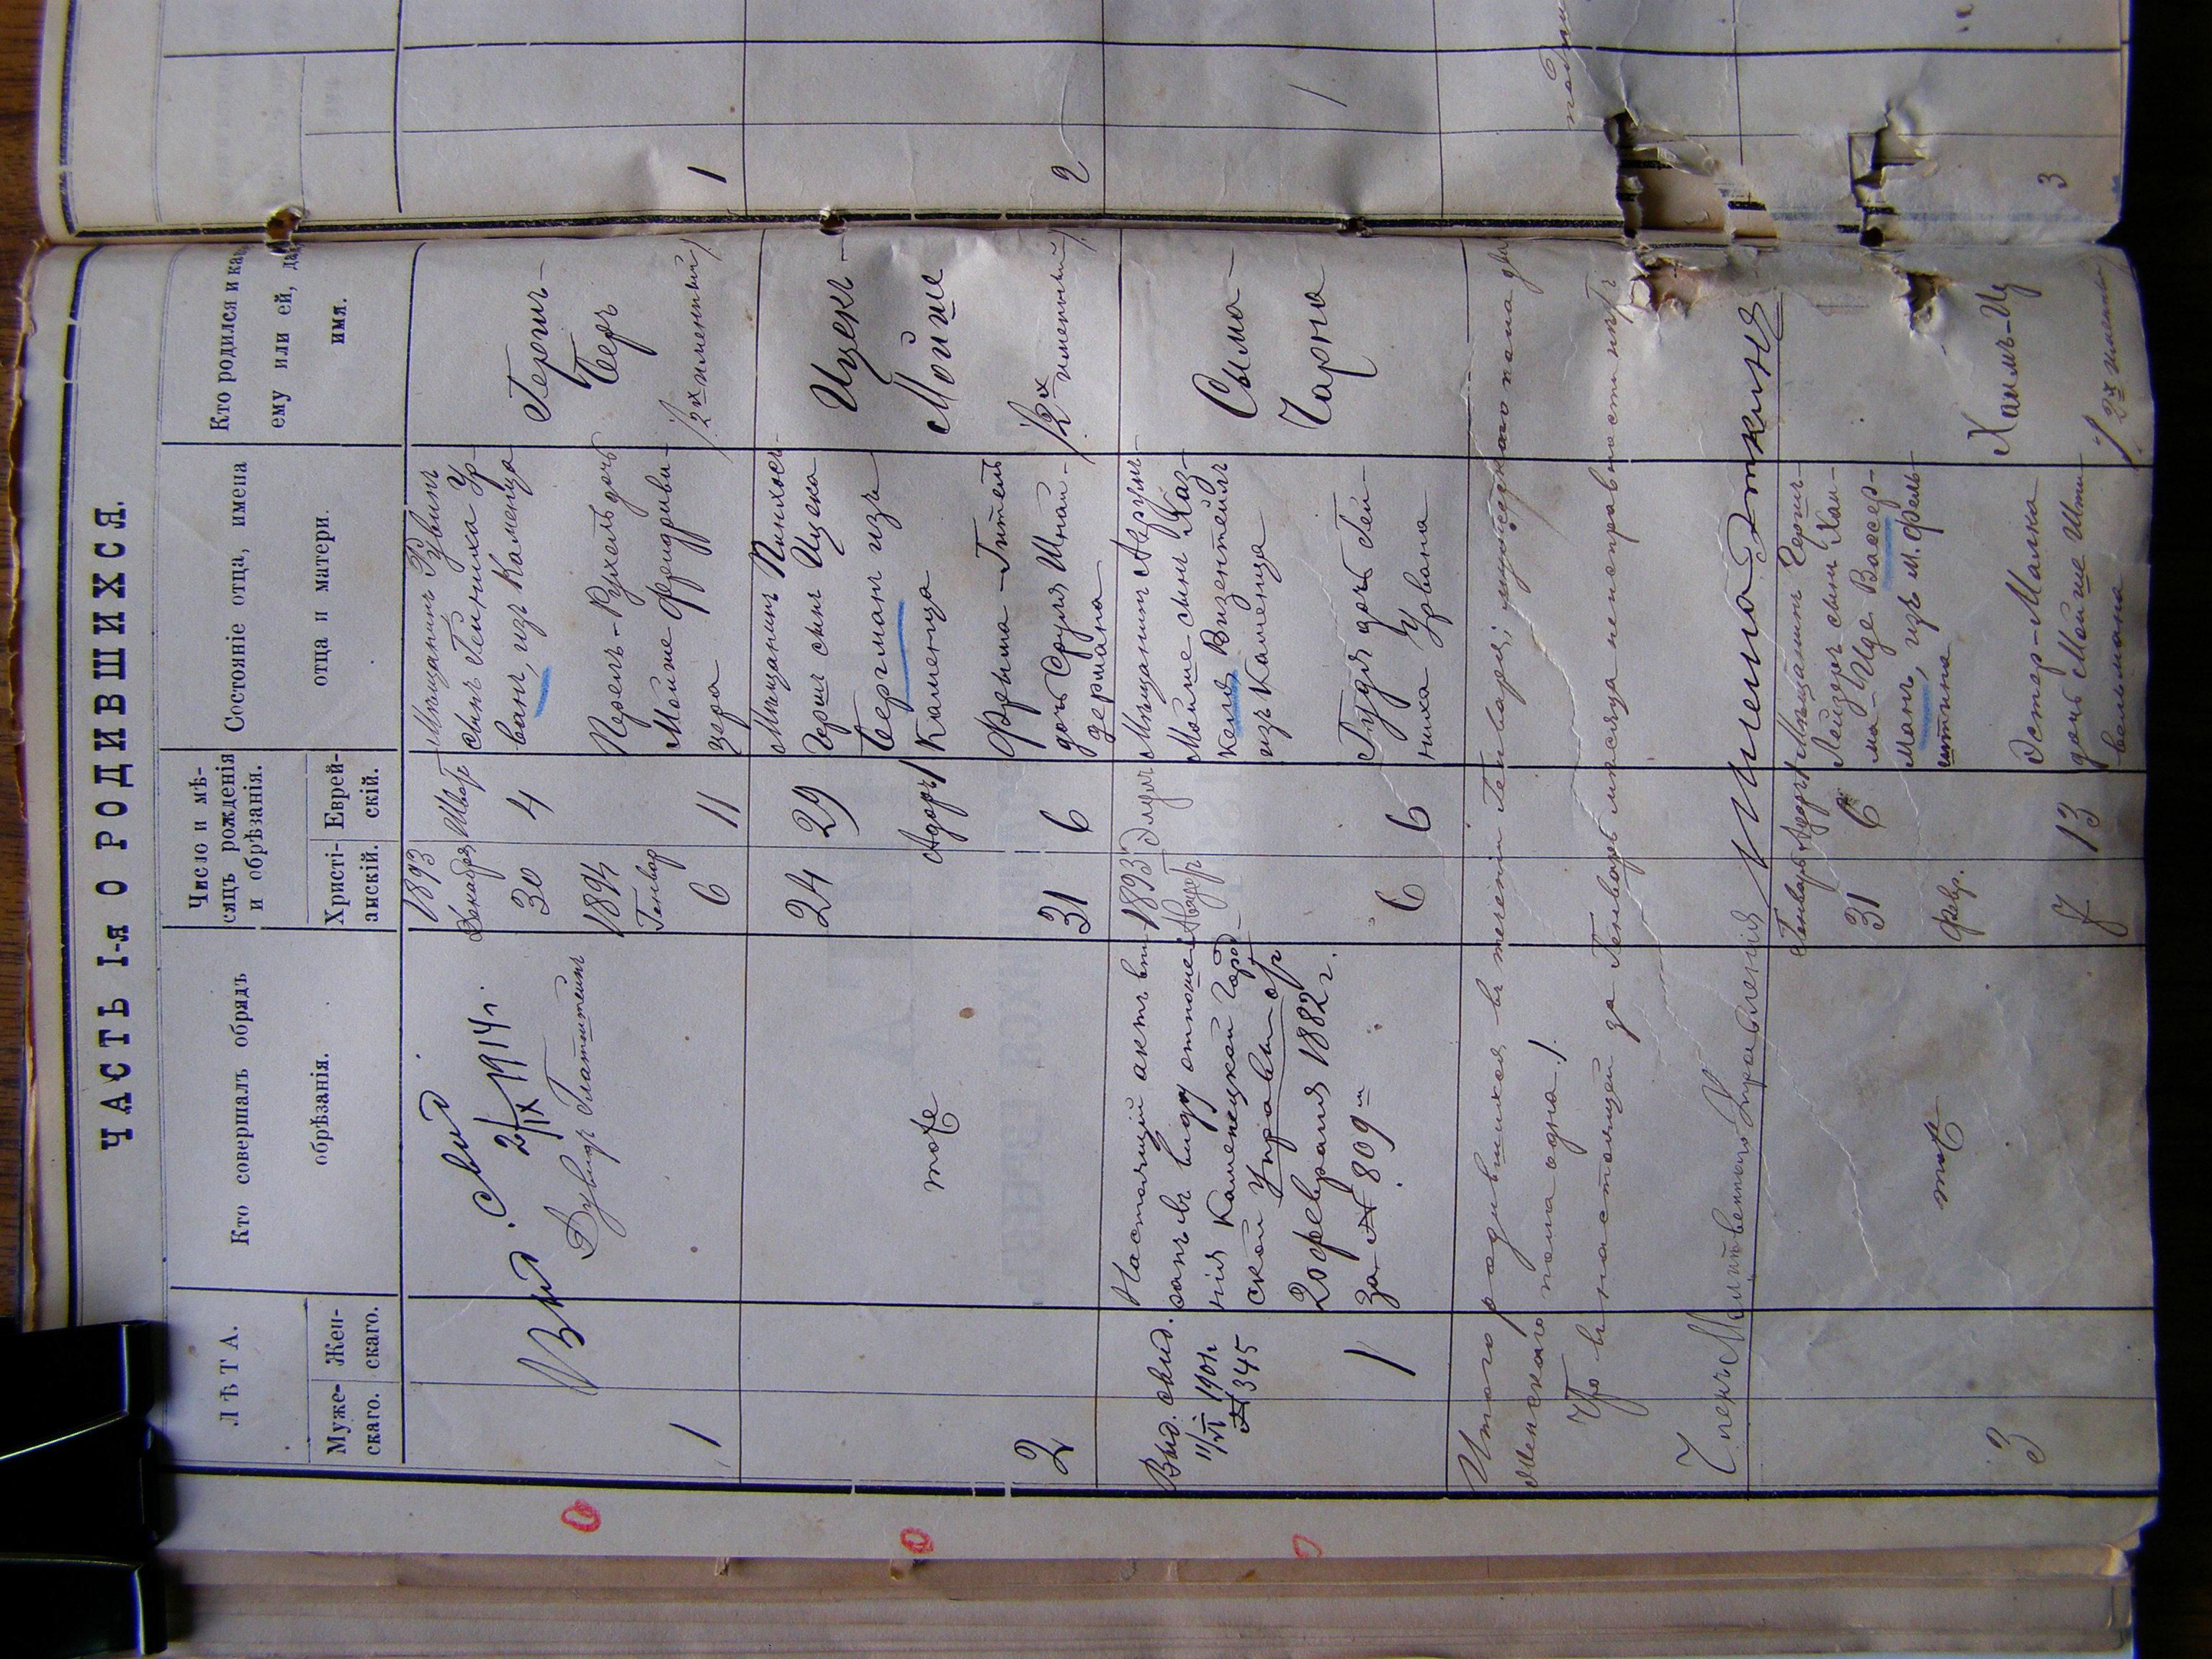 ЧАСТЬ I-я О РОДИВШИХСЯ.
ЛѢТА.
Муже-
скаго.
Жен-
скаго.
Кто совершалъ обрядъ
обрѣзанія.
Число и мѣ-
сяцъ рожденія
и обрѣзанія.
Христі-
анскій.
Еврей-
скій.
Состояніе отца, имена
отца и матери.
Кто родился и как
ему или ей, да
имя.
1
Выд. свид
2/IX 1914 г.
Дувидъ Глатштейнъ
1893
Декабря
30
1894
Генвар
6
Шват
4
11
Мѣщанинъ Рувинъ
сынъ Генниха Ур-
ванъ, изъ Каменца
Перель-Рухель дочь
Мойше Фридриви-
зера
Гершъ
Беръ
/2х именный/
1
2
тоже
24
31
29
Адоръ 1
6
Мѣщанинъ Пинхось-
Гершъ сынъ Ицека
Бергманъ изъ
Каменца
Фрыма-Гитель
дочь Сруля Шнай-
дермана
Ицекъ-
Мойше
/2х именный/
2
Выд. свид.
11/VI 1901 г
№ 345
1
Настоящій актъ впи-
санъ въ виду отноше-
нія Каменецкой Город-
ской Управы от
20 февраля 1882 г.
за № 809 м
1893
6
6
Мѣщанинъ Аврумъ-
Мойше сынъ Хаз-
келя Визентейнъ
изъ Каменца
Гудля дочь Гей-
ниха Урвана
Сыма-
Чарна
1
Итого родившихся въ теченіи Генваря; мужескаго пола два
женскаго пола одна /.
Что въ настоящей за Генварь мѣсяца неисправности нѣтъ
Членъ Молитвеннаго Правленія
3
тоже
Генварь
31
Февр.
7
Адоръ 1
6
13
Мѣщанинъ Гершъ-
Лейзеръ сынъ Хаи-
ма-Иде Вассер-
манъ, изъ м. Фель-
штина
Эстер-Малка
дочь Мойше Шти-
вельмана
Хаимъ-Иц
/2х именный/
3